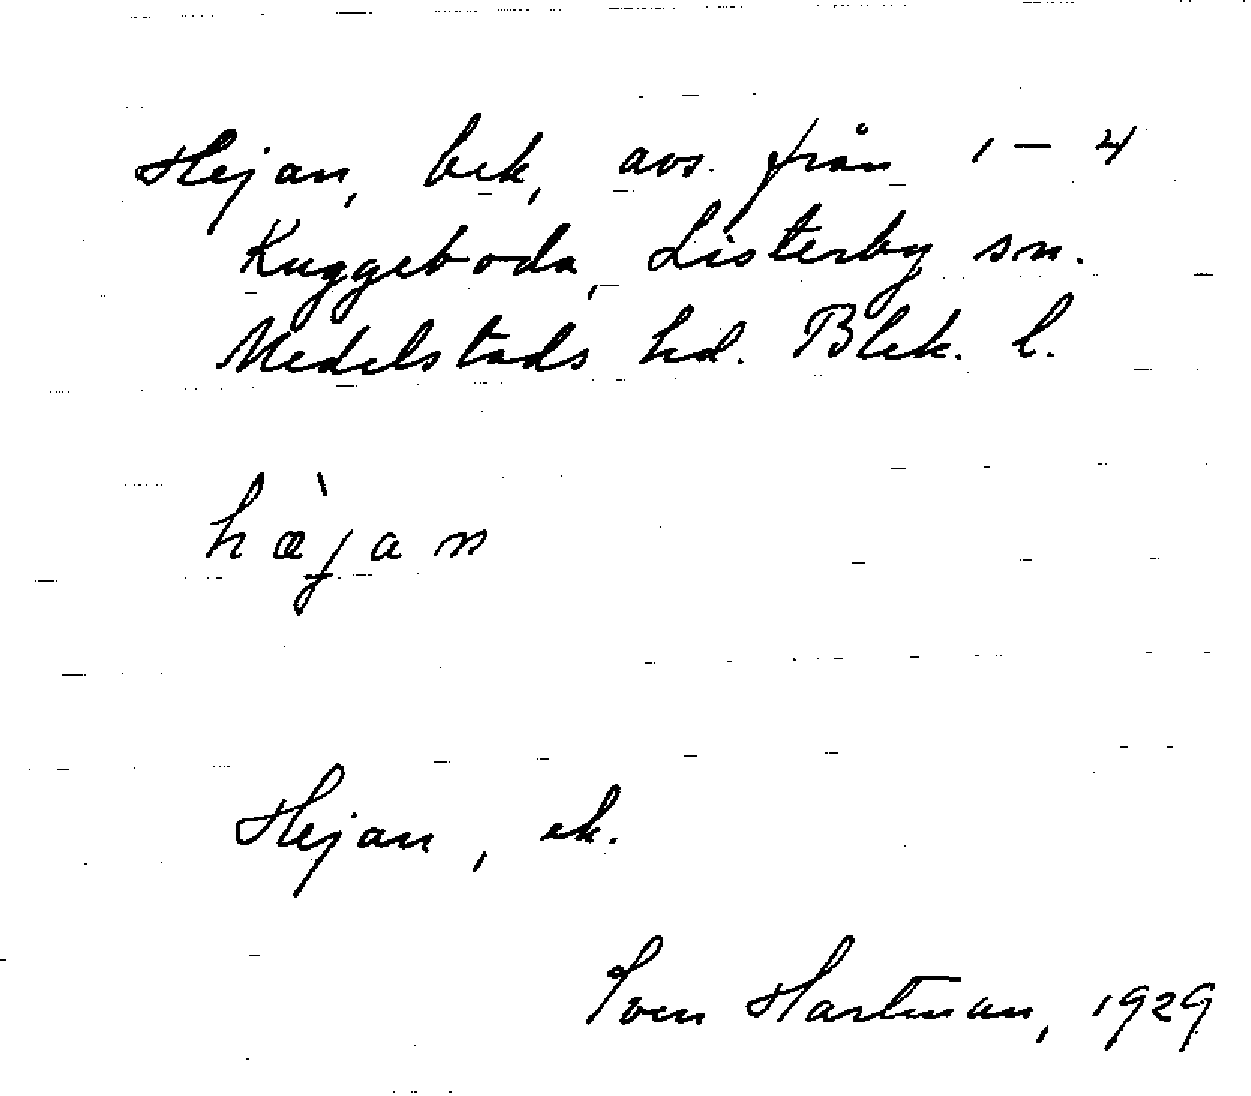 Hejan, bek, avs. från 1 – 4
Kuggeboda, Listerby sn.
Medelstads hd. Blek. l.
hæ̀jan
Hejan, ek.
Sven Hartman, 1929